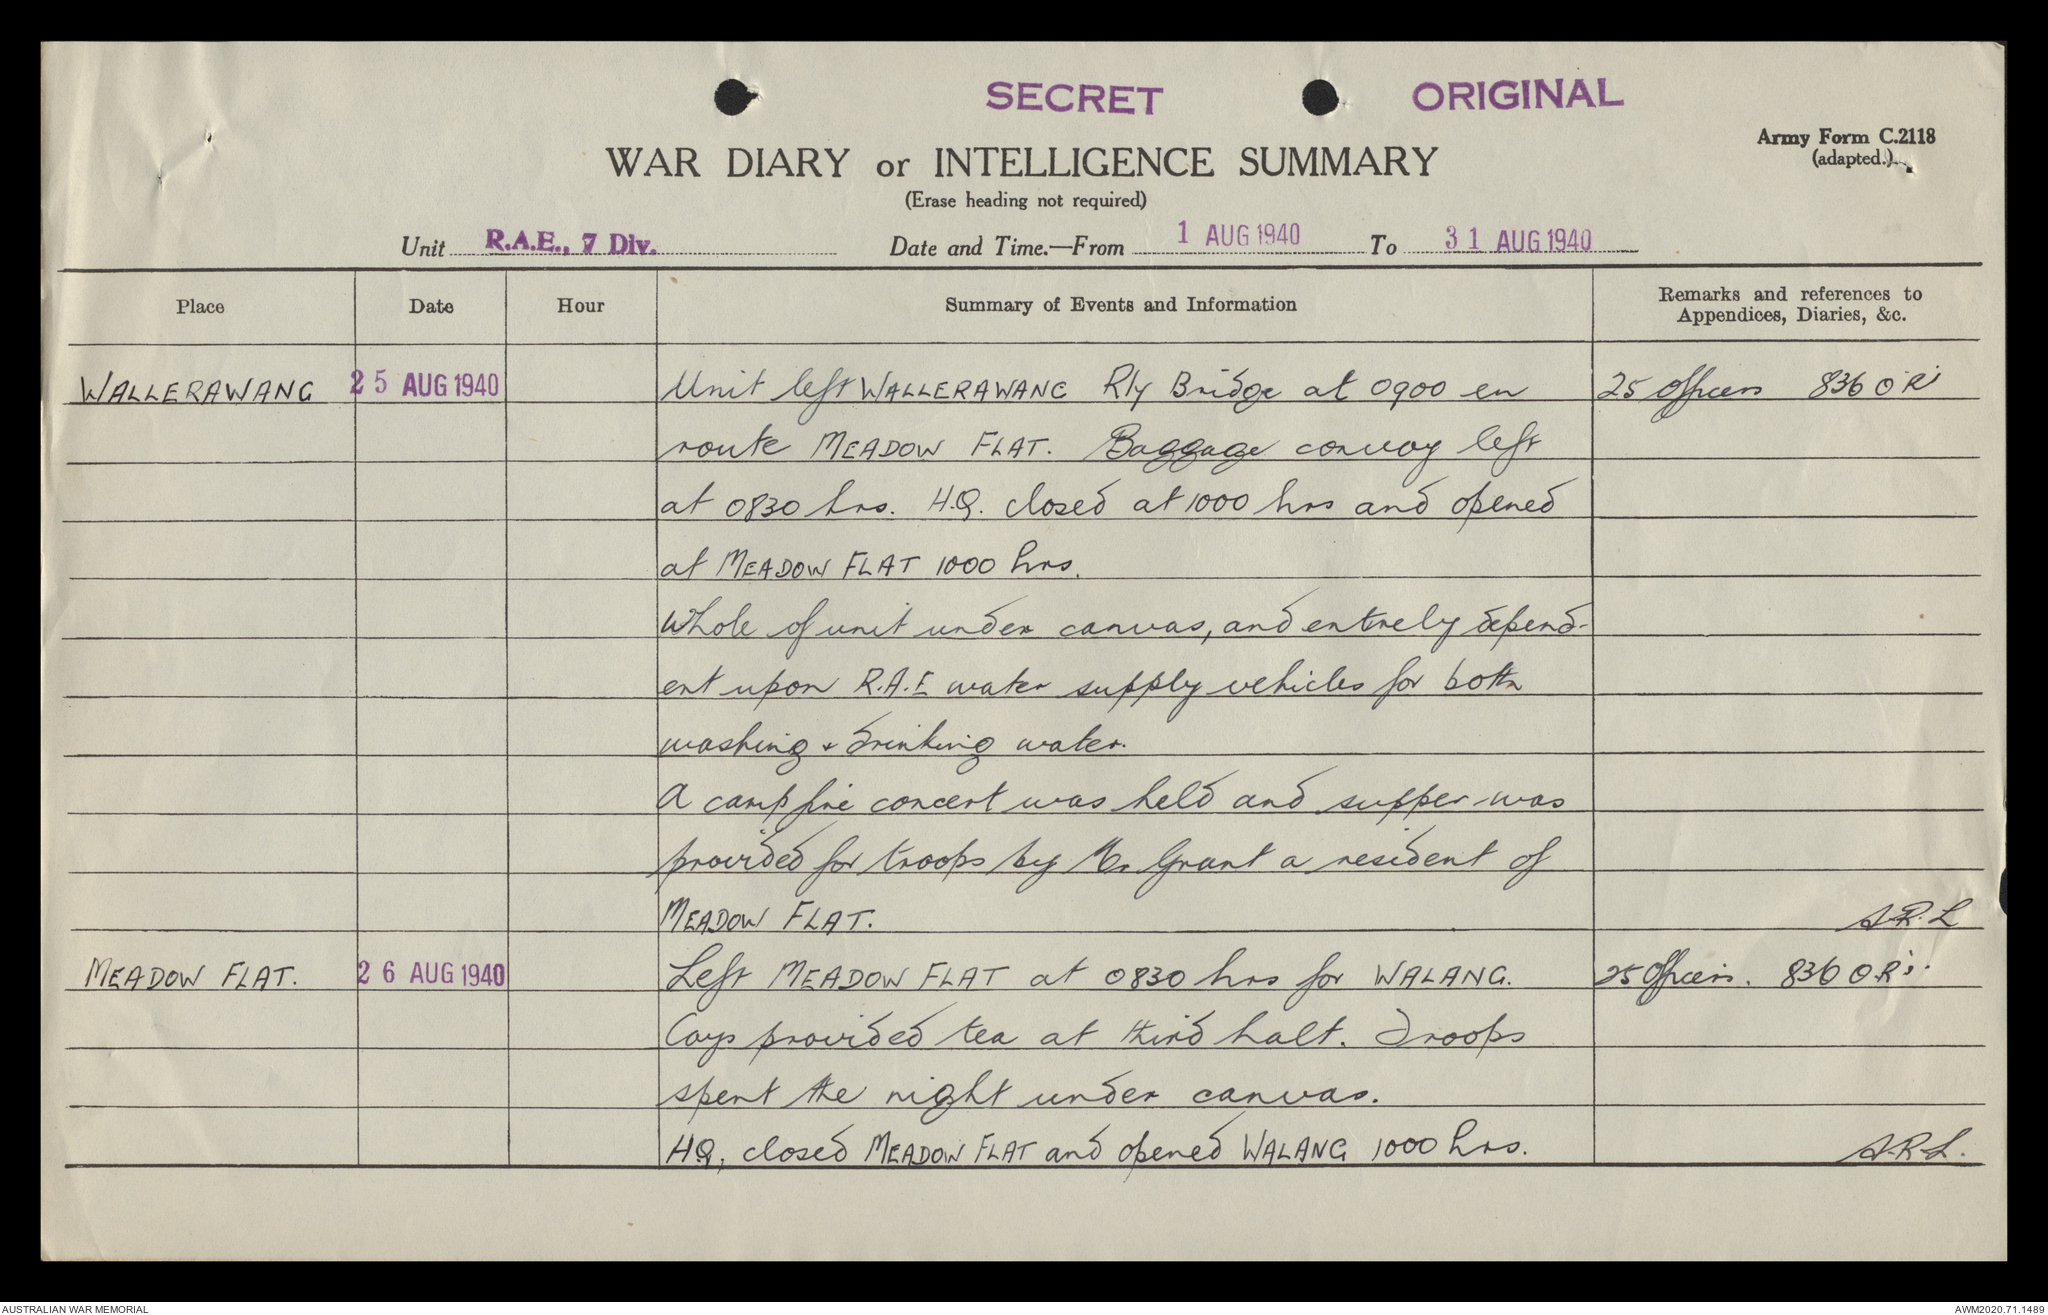 SECRET ORIGINAL
Army Form C.2118
(adapted.)
WAR DIARY or INTELLIGENCE SUMMARY
(Erase heading not required)
Unit R.A.E., 7 Div. Date and Time.—From 1 AUG 1940 To 31 AUG 1940
Place Date Hour Summary of Events and Information Remarks and references to
Appendices, Diaries, &c.
WALLERAWANG 25 AUG 1940 Unit left WALLERAWANG Rly Bridge at 0900 en 25 Officers 836 O R's
route MEADOW FLAT. Baggage convoy left
at 0830 hrs. H.Q. closed at 1000 hrs and opened
at MEADOW FLAT 1000 hrs.
Whole of unit under canvas, and entirely depend-
ent upon R.A.E water supply vehicles for both
washing & drinking water.
A camp fire concert was held and supper was
provided for troops by Mr Grant a resident of
MEADOW FLAT. A.R.L
MEADOW FLAT. 26 AUG 1940 Left MEADOW FLAT at 0830 hrs for WALANG. 25 Officers. 836 O.R's.
Coys provided tea at third halt. Troops
spent the night under canvas.
HQ, closed MEADOW FLAT and opened WALANG 1000 hrs. A.R.L.
AUSTRALIAN WAR MEMORIAL AWM2020.71.1489